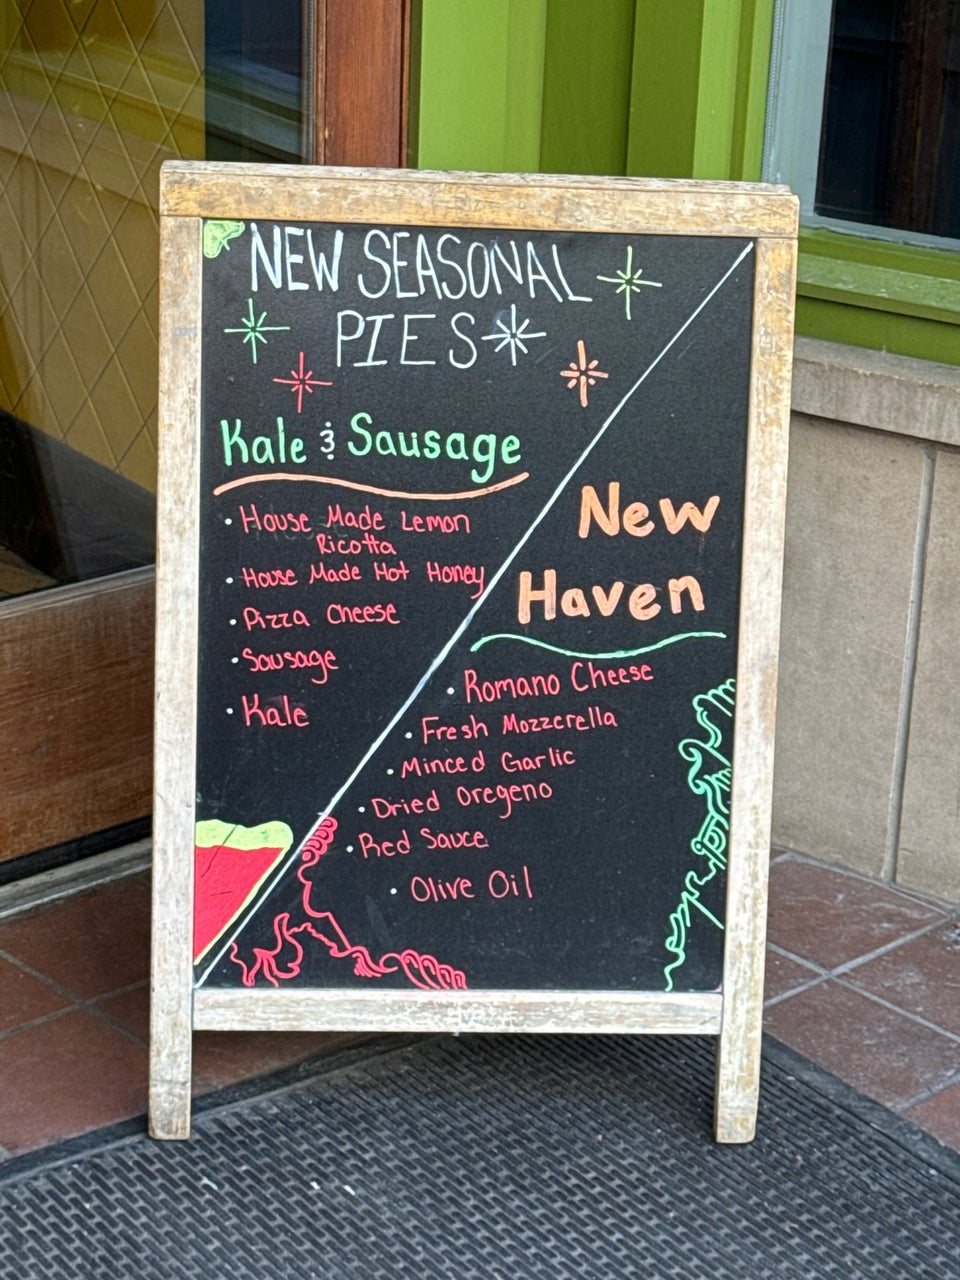 NEW SEASONAL
PIES
Kale & Sausage
• House Made Lemon
Ricotta
• House Made Hot Honey
• Pizza Cheese
• Sausage
• Kale
New
Haven
• Romano Cheese
• Fresh Mozzerella
• Minced Garlic
• Dried Oregeno
• Red Sauce
• Olive Oil